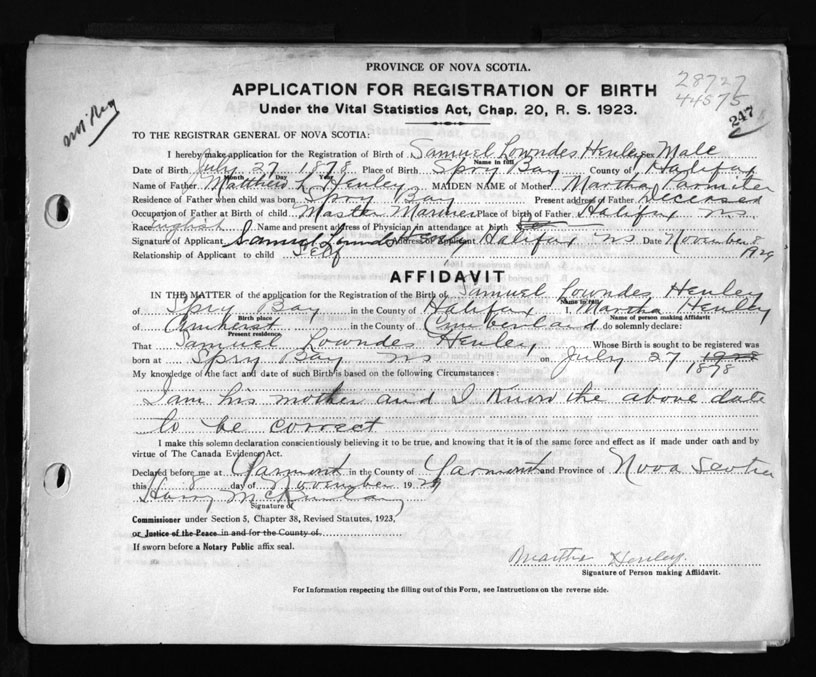 PROVINCE OF NOVA SCOTIA.
28727
44575
APPLICATION FOR REGISTRATION OF BIRTH
Under the Vital Statistics Act, Chap. 20, R. S. 1923.
247
TO THE REGISTRAR GENERAL OF NOVA SCOTIA:
I hereby make application for the Registration of Birth of Samuel Lowndes Henley sex Male
Name in full
Date of Birth July 27 1878 Place of Birth Spry Bay County of Halifax
Month Day Year
Name of Father Matthew L Henley MAIDEN NAME of Mother Martha Parmiter
Residence of Father when child was born Spry Bay Present address of Father Deceased
Occupation of Father at Birth of child Master Mariner Place of birth of Father Halifax NS
Race English Name and present address of Physician in attendance at birth
Signature of Applicant Samuel Lownds Henley Address of Applicant Halifax NS Date November 8
1929
Relationship of Applicant to child Self
AFFIDAVIT
IN THE MATTER of the application for the Registration of the Birth of Samuel Lowndes Henley
Name in full
of Spry Bay in the County of Halifax I, Martha Henley
Birth place Name of person making Affidavit
of Amherst in the County of Cumberland do solemnly declare:
Present residence
That Samuel Lowndes Henley Whose Birth is sought to be registered was
born at Spry Bay NS on July 27 1928
1878
My knowledge of the fact and date of such Birth is based on the following Circumstances:
I am his mother and I know the above date
to be correct
I make this solemn declaration conscientiously believing it to be true, and knowing that it is of the same force and effect as if made under oath and by
virtue of The Canada Evidence Act.
Declared before me at Yarmouth in the County of Yarmouth and Province of Nova Scotia
this 8 day of November 1929
Harry McKinlay
Signature of
Commissioner under Section 5, Chapter 38, Revised Statutes, 1923,
or Justice of the Peace in and for the County of
If sworn before a Notary Public affix seal.
Martha Henley
Signature of Person making Affidavit.
For Information respecting the filling out of this Form, see Instructions on the reverse side.